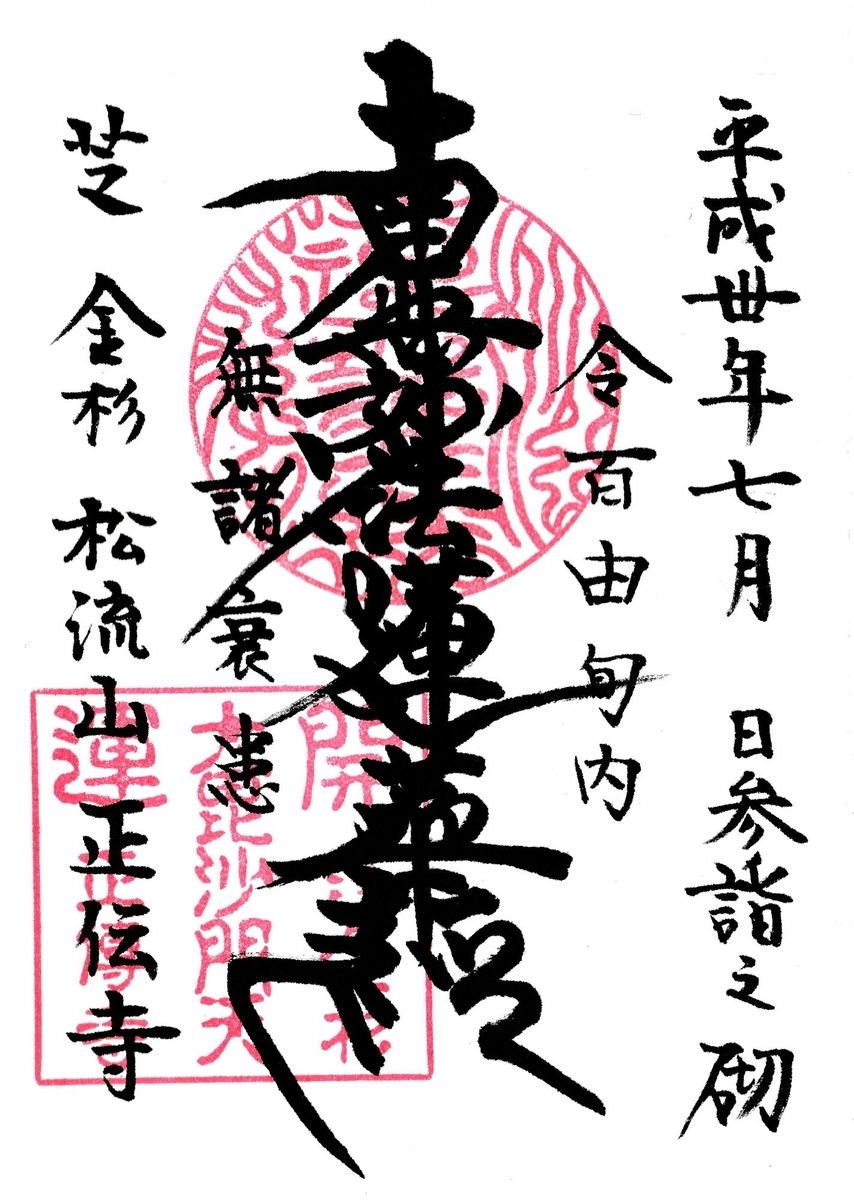 平成丗年七月 日参詣之砌
令百由旬内
南無妙法蓮華経
無諸衰患
芝 金杉 松流山正伝寺
開
大毘沙門天
運